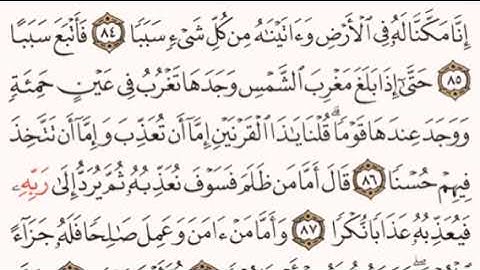 إِنَّا مَكَّنَّا لَهُۥ فِى ٱلْأَرْضِ وَءَاتَيْنَٰهُ مِن كُلِّ شَىْءٍ سَبَبًا ٨٤ فَأَتْبَعَ سَبَبًا
٨٥ حَتَّىٰٓ إِذَا بَلَغَ مَغْرِبَ ٱلشَّمْسِ وَجَدَهَا تَغْرُبُ فِى عَيْنٍ حَمِئَةٍ
وَوَجَدَ عِندَهَا قَوْمًا ۗ قُلْنَا يَٰذَا ٱلْقَرْنَيْنِ إِمَّآ أَن تُعَذِّبَ وَإِمَّآ أَن تَتَّخِذَ
فِيهِمْ حُسْنًا ٨٦ قَالَ أَمَّا مَن ظَلَمَ فَسَوْفَ نُعَذِّبُهُۥ ثُمَّ يُرَدُّ إِلَىٰ رَبِّهِۦ
فَيُعَذِّبُهُۥ عَذَابًا نُّكْرًا ٨٧ وَأَمَّا مَنْ ءَامَنَ وَعَمِلَ صَٰلِحًا فَلَهُۥ جَزَآءً